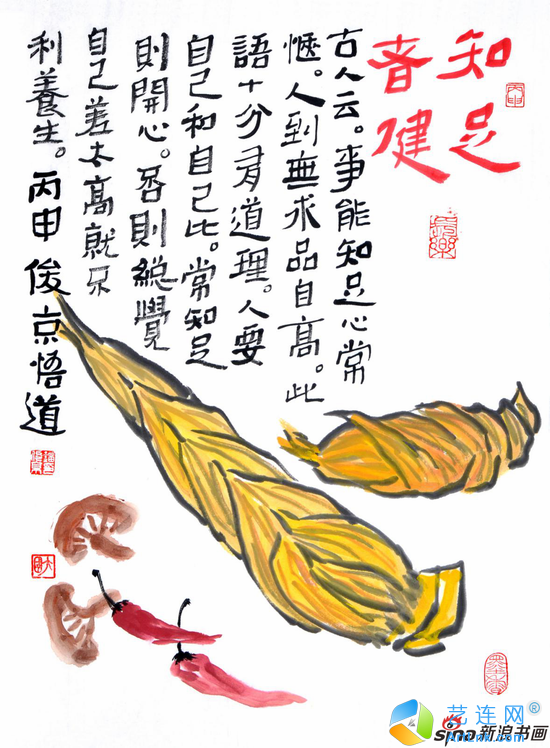 知足
者健
古人云。事能知足心常
愜。人到無求品自高。此
語十分有道理。人要
自己和自己比。常知足
則開心。否則總覺
自己差太高就不
利養生。丙申 俊京悟道
丙申
艺连网®
sina新浪书画